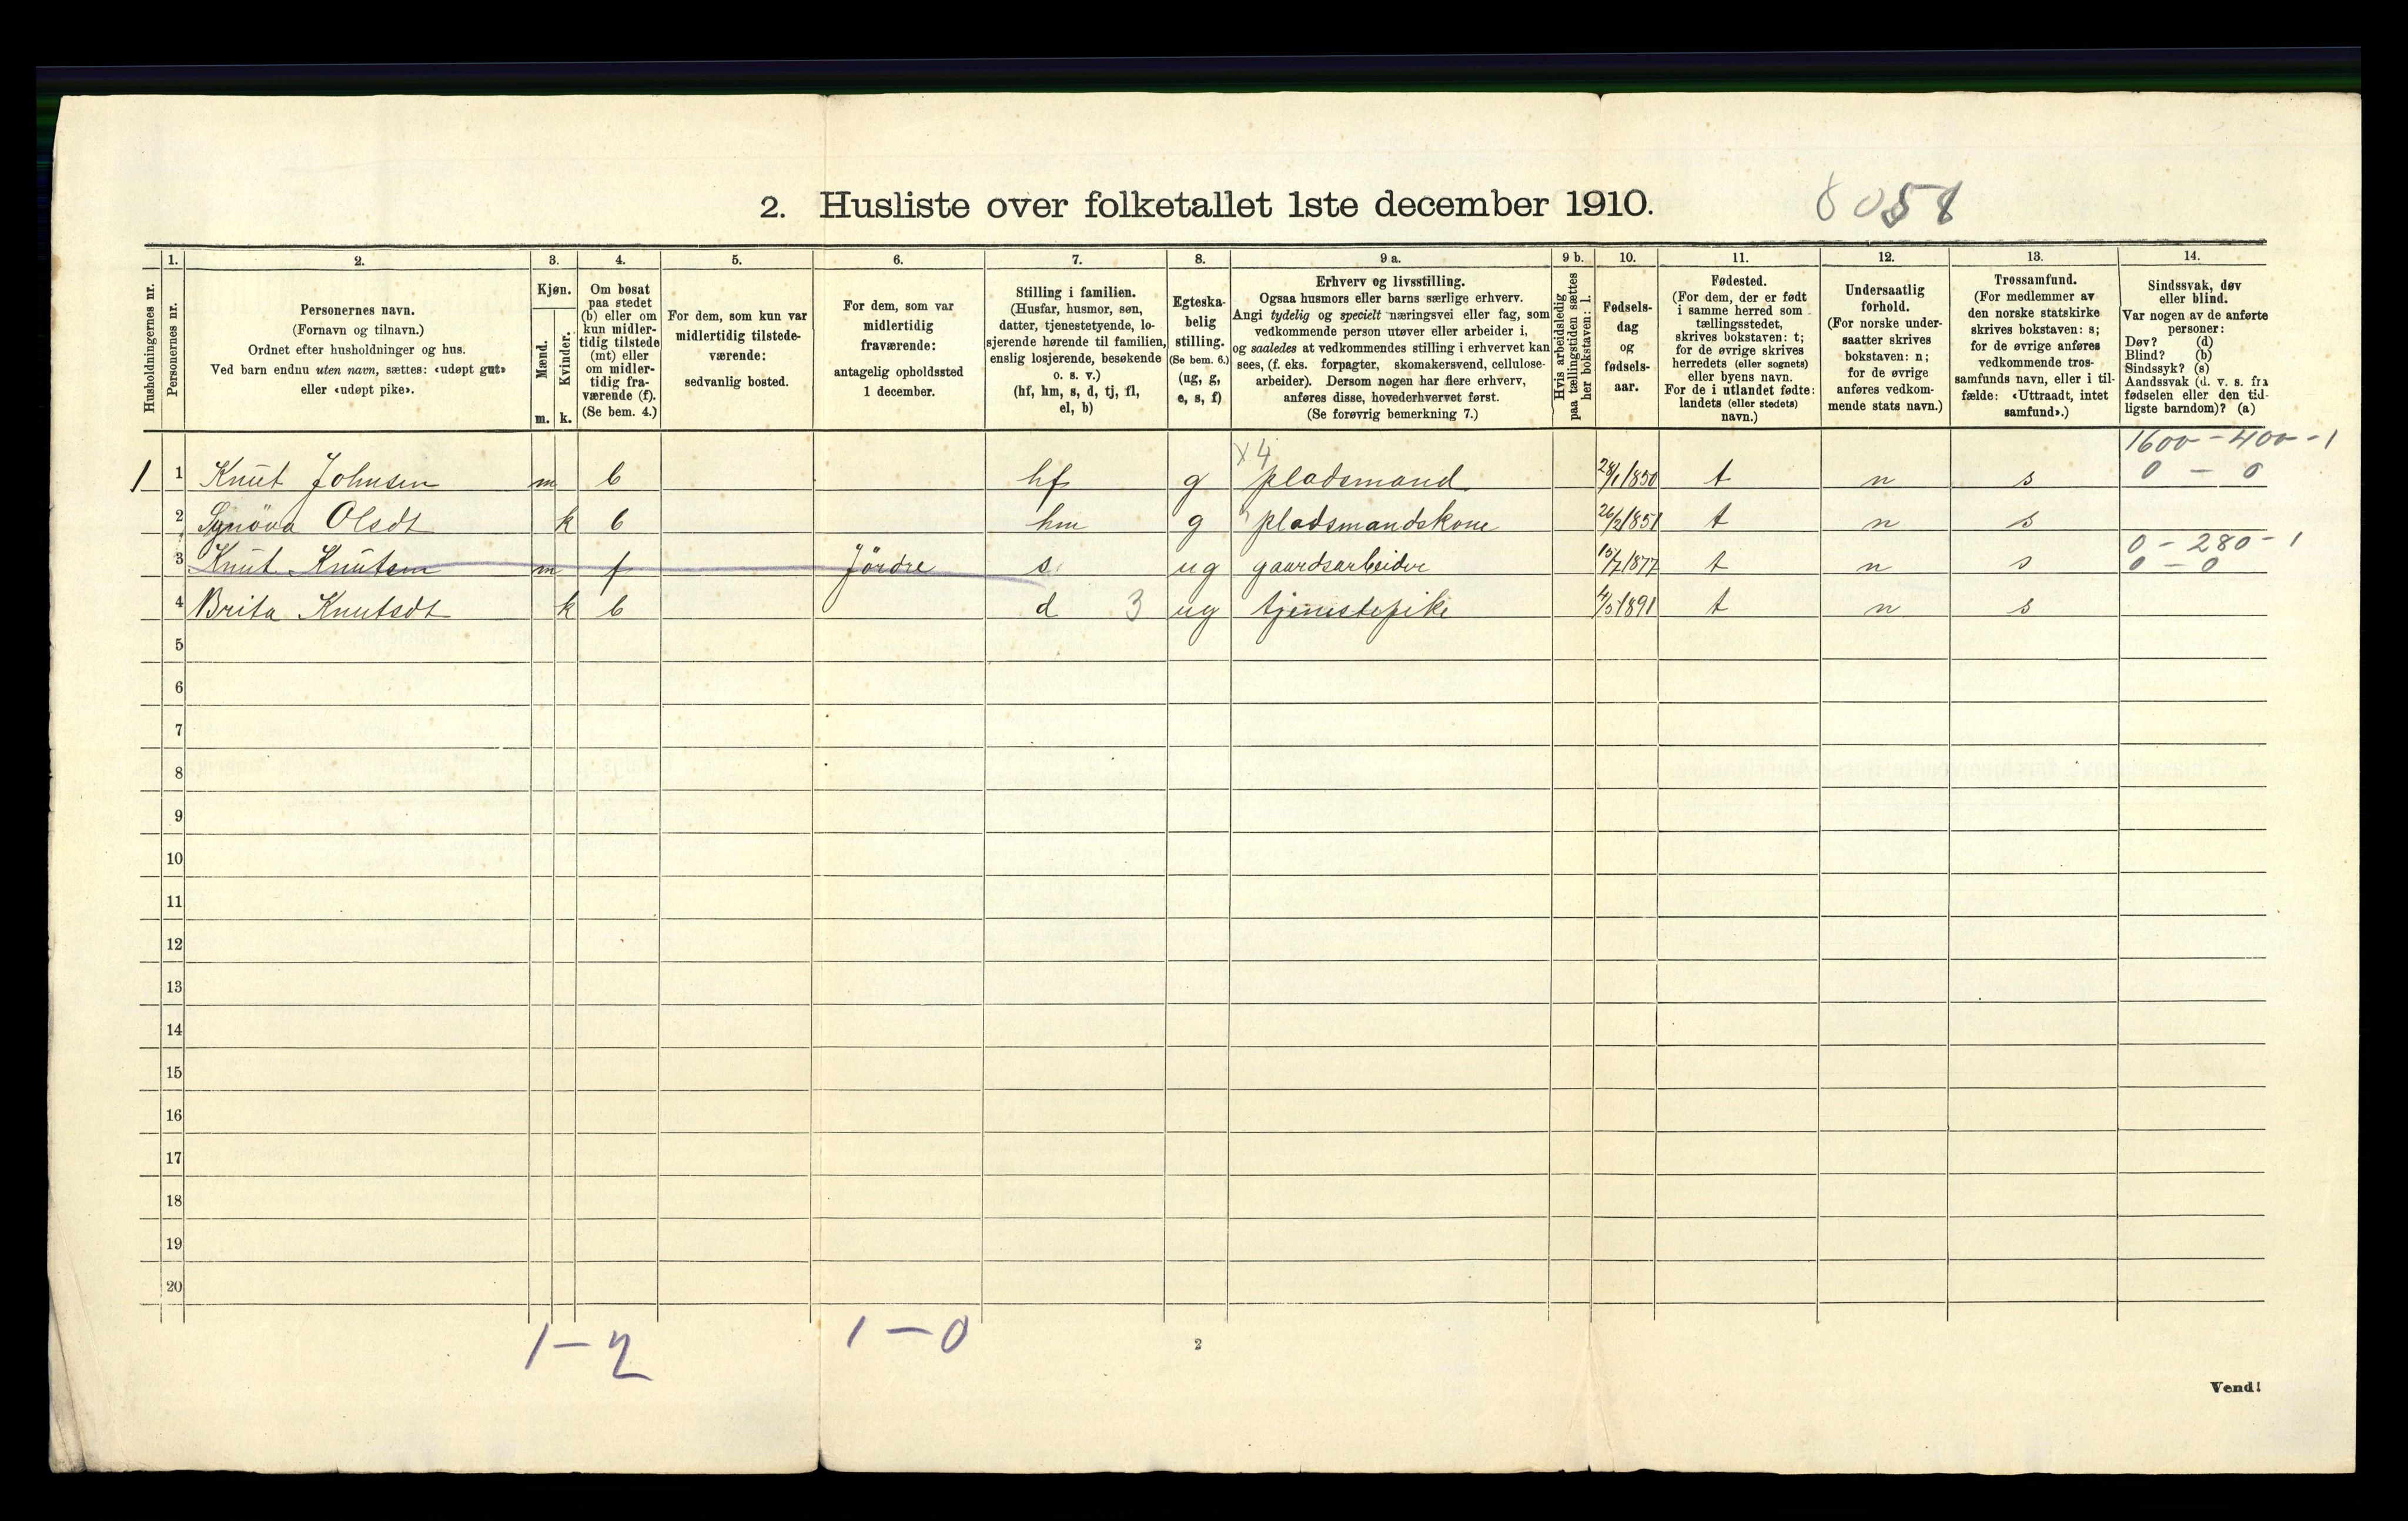 2. Husliste over folketallet 1ste december 1910.
1. 2. 3. 4. 5. 6. 7. 8. 9 a. 9 b. 10. 11. 12. 13. 14.
Husholdningernes nr.
Personernes nr.
Personernes navn.
(Fornavn og tilnavn.)
Ordnet efter husholdninger og hus.
Ved barn endnu uten navn, sættes: «udøpt gut»
eller «udøpt pike».
Kjøn.
Mænd.
m.
Kvinder.
k.
Om bosat
paa stedet
(b) eller om
kun midler-
tidig tilstede
(mt) eller
om midler-
tidig fra-
værende (f).
(Se bem. 4.)
For dem, som kun var
midlertidig tilstede-
værende:
sedvanlig bosted.
For dem, som var
midlertidig
fraværende:
antagelig opholdssted
1 december.
Stilling i familien.
(Husfar, husmor, søn,
datter, tjenestetyende, lo-
sjerende hørende til familien,
enslig losjerende, besøkende
o. s. v.)
(hf, hm, s, d, tj, fl,
el, b)
Egteska-
belig
stilling.
(Se bem. 6.)
(ug, g,
e, s, f)
Erhverv og livsstilling.
Ogsaa husmors eller barns særlige erhverv.
Angi tydelig og specielt næringsvei eller fag, som
vedkommende person utøver eller arbeider i,
og saaledes at vedkommendes stilling i erhvervet kan
sees, (f. eks. forpagter, skomakersvend, cellulose-
arbeider). Dersom nogen har flere erhverv,
anføres disse, hovederhvervet først.
(Se forøvrig bemerkning 7.)
Hvis arbeidsledig
paa tællingstiden sættes
her bokstaven: l.
Fødsels-
dag
og
fødsels-
aar.
Fødested.
(For dem, der er født
i samme herred som
tællingsstedet,
skrives bokstaven: t;
for de øvrige skrives
herredets (eller sognets)
eller byens navn.
For de i utlandet fødte:
landets (eller stedets)
navn.)
Undersaatlig
forhold.
(For norske under-
saatter skrives
bokstaven: n;
for de øvrige
anføres vedkom-
mende stats navn.)
Trossamfund.
(For medlemmer av
den norske statskirke
skrives bokstaven: s;
for de øvrige anføres
vedkommende tros-
samfunds navn, eller i til-
fælde: «Uttraadt, intet
samfund».)
Sindssvak, døv
eller blind.
Var nogen av de anførte
personer:
Døv? (d)
Blind? (b)
Sindssyk? (s)
Aandssvak (d. v. s. fra
fødselen eller den tid-
ligste barndom)? (a)
x4 1600 - 400 - 1
1 1 Knut Johnsen m b hf g pladsmand 1850 t n s 0 - 0
2 Synöva Olsdt k b hm g pladsmandskone 26/2 1851 t n s
0 - 280 - 1
3 Knut Knutsen m f Jördre s ug gaardsarbeider 15/7 1877 t n s 0 - 0
4 Brita Knutsdt k b d 3 ug tjenestepike 1891 t n s
5
6
7
8
9
10
11
12
13
14
15
16
17
18
19
20
1 - 2 1 - 0
2
Vend!